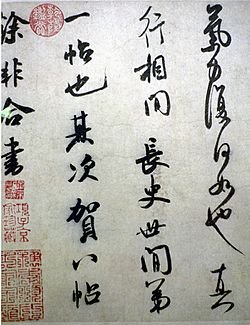 氣力復何如也真
行相間長史世間第
一帖也其次賀八帖
餘非合書